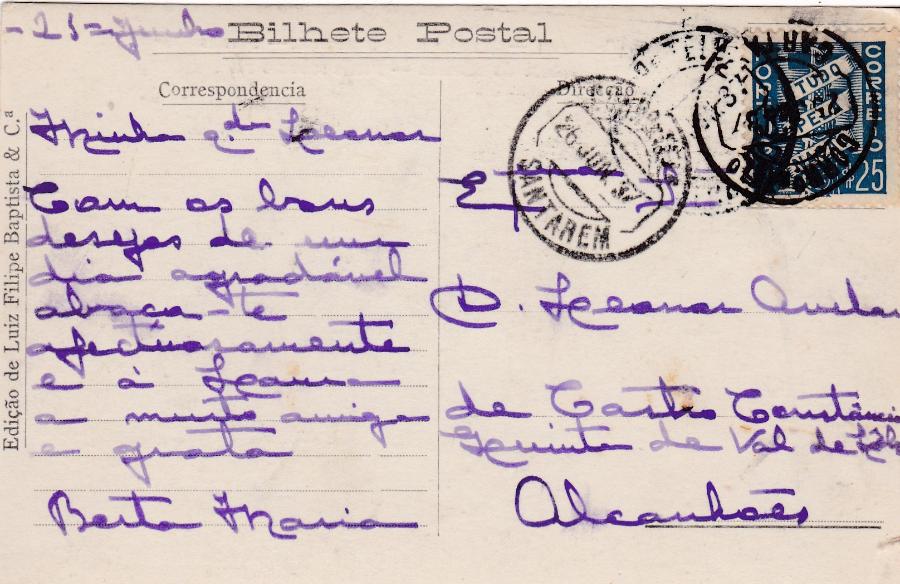 - 25 - Junho
Bilhete Postal
Correspondencia
Direcção
Edição de Luiz Filipe Baptista & C.ª
Minha q.da Leonor
Com os bons
desejos de um
dia agradável
abraça-te
afectuosamente
e à Laura
a muito amiga
e grata
Berta Maria
26 JUN 37
SANTAREM
CORREIO
TUDO
PELA
25
D. Leonor
de Castro Constâncio
Quinta de Val de
Alcanhões